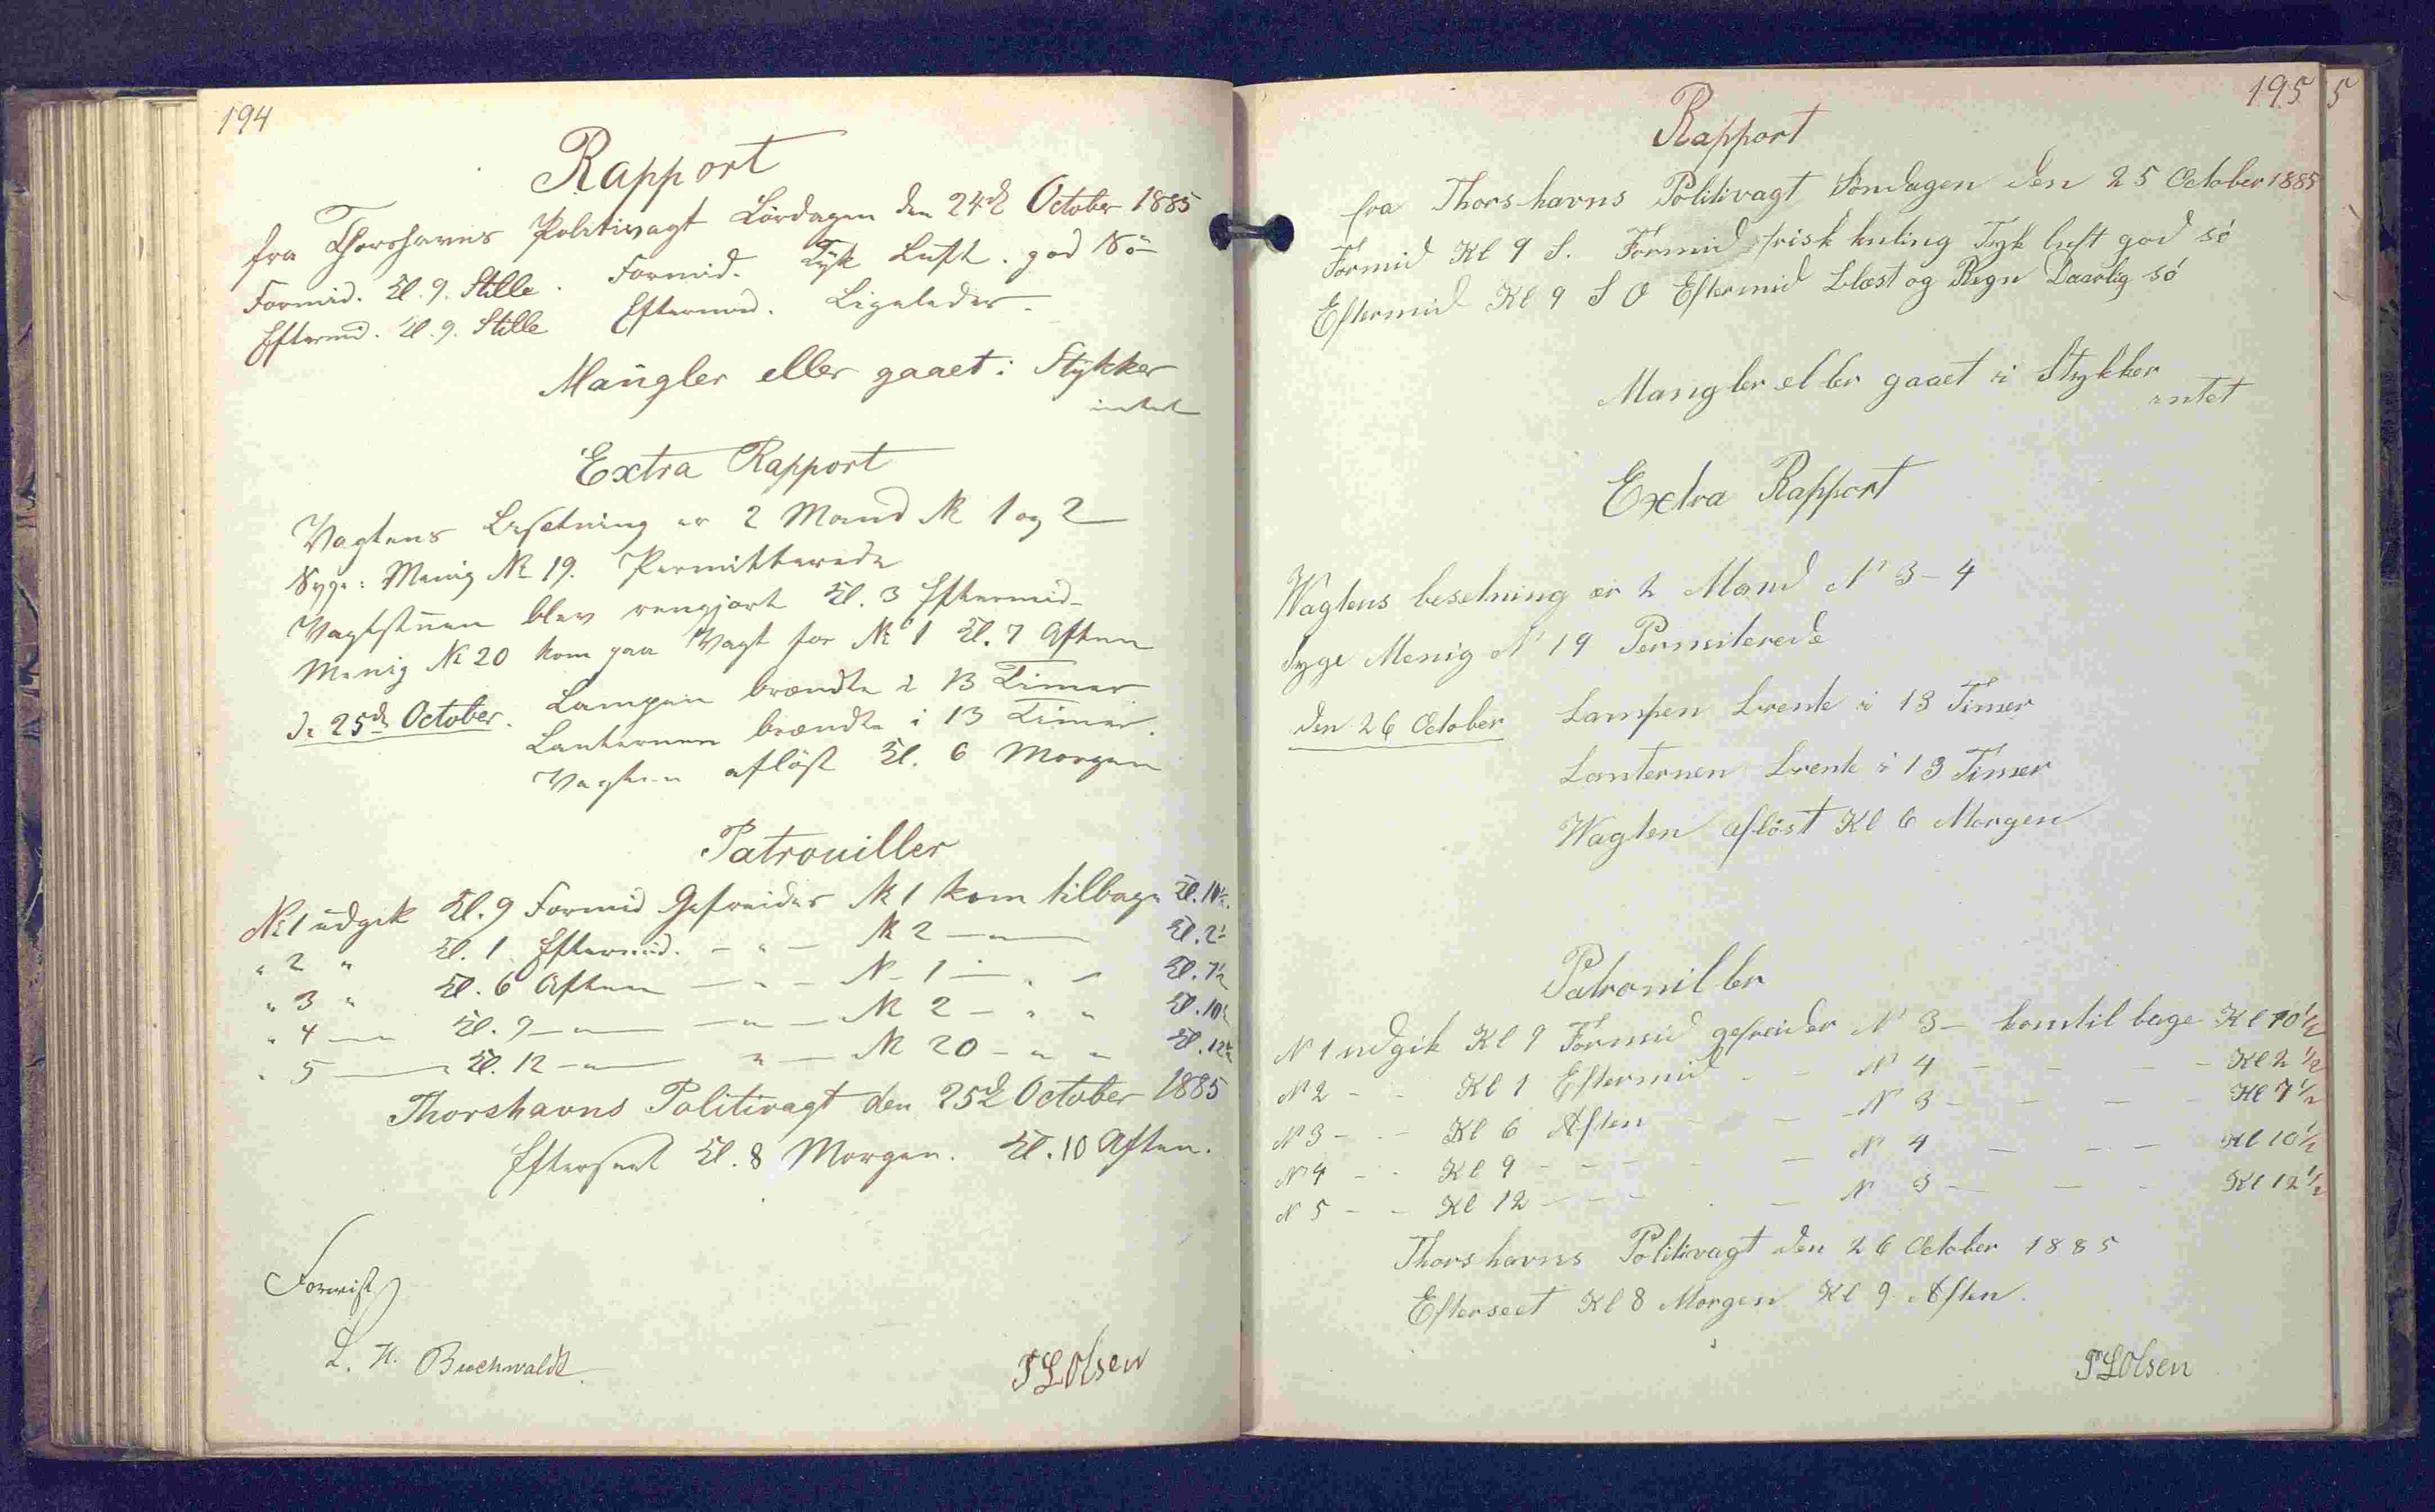 194
Rapport
fra Thorshavns Politivagt Lørdagen den 24de October 1885
Formid. Kl. 9. Stille. Formid. Tyk Luft. god Sö
Eftermid. Kl. 9. Stille Eftermid. Ligeledes.
Mangler eller gaaet i Stykker
intet
Extra Rapport
Vagtens Besetning er 2 Mand № 1 og 2
Syge: Menig № 19. Permitterede
Vagtstuen blev rengjort Kl. 3 Eftermid.
Menig № 20 kom paa Vagt for № 1 Kl. 7 Aften
D. 25de October. Lampen brændte i 13 Timer
Lanternen brændte i 13 Timer.
Vagten aflöst Kl. 6 Morgen
Patrouiller
№ 1 udgik Kl. 9 Formid Gefreider № 1 kom tilbage Kl. 10½
" 2 " Kl. 1 Eftermid. - " - № 2 - " - Kl. 2½
" 3 " Kl. 6 Aften - " - № 1 - " - Kl. 7½
" 4 - " Kl. 9 - " - - " - № 2 - " " Kl. 10½
" 5 - " Kl. 12 - " - " - № 20 - " - Kl. 12½
Thorshavns Politivagt den 25de October 1885
Efterseet Kl. 8 Morgen. Kl. 10 Aften.
Forevist
L. H. Buchwaldt
P L Olsen
195
5
Rapport
fra Thorshavns Politivagt Søndagen den 25 October 1885
Formid Kl 9 S. Formid frisk kuling Tyk luft god sö
Eftermid Kl 9 S O Eftermid Blæst og Regn Daarlig sö
Mangler eller gaaet i Stykker
intet
Extra Rapport
Wagtens besetning er 2 Mand N 3-4
Syge Menig N 19 Permiterede
den 26 October Lampen brente i 13 Timer
Lanternen brente i 13 Timer
Wagten aflöst Kl 6 Morgen
Patrouiller
N 1 udgik Kl 9 Formid gefreider N 3 - kom tilbage Kl 10½
N 2 - - Kl 1 Eftermid - - N 4 - - - - Kl 2½
N 3 - - Kl 6 Aften - - N 3 - - - - Kl 7½
N 4 - - Kl 9 - - - - - N 4 - - - Kl 10½
N 5 - - Kl 12 - - - - - N 3 - - - Kl 12½
Thorshavns Politivagt den 26 October 1885
Efterseet Kl 8 Morgen Kl 9 Aften.
P L Olsen